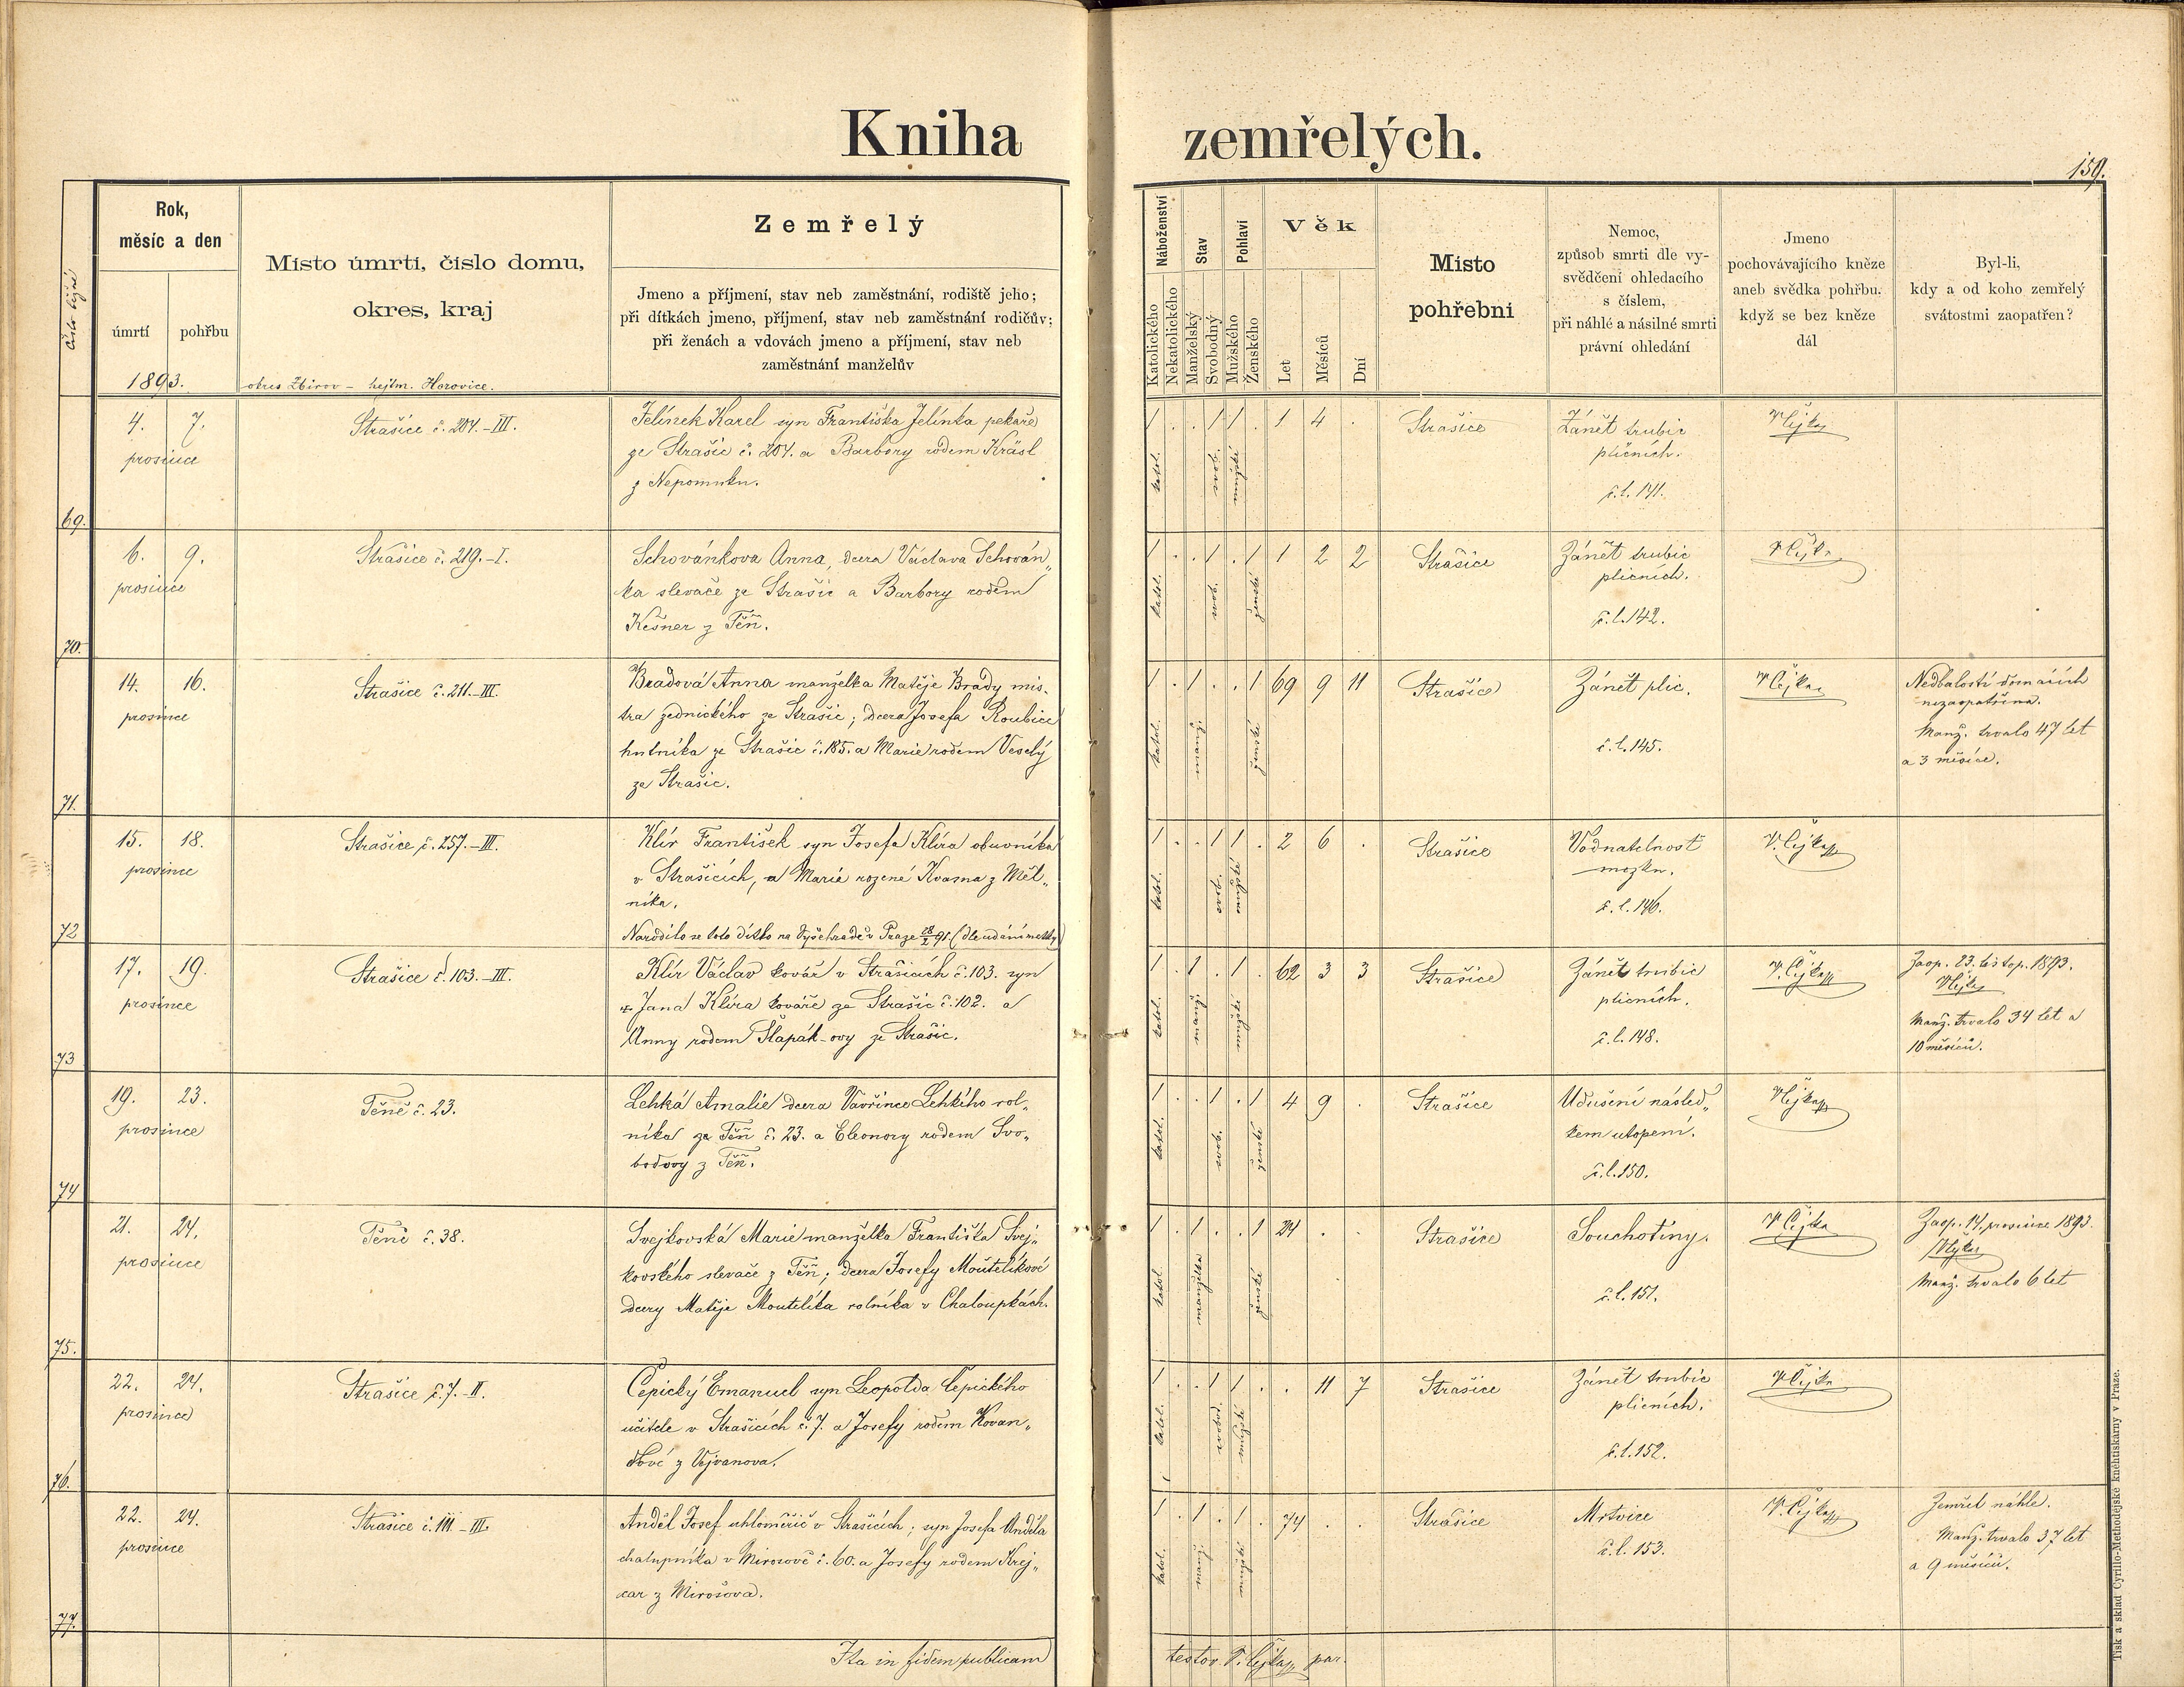 Kniha zemřelých.
159.
Číslo běžné
Rok,
měsíc a den
úmrtí
pohřbu
1893.
Místo úmrtí, číslo domu,
okres, kraj
okres Zbirov – hejtm. Hořovice.
Zemřelý
Jmeno a příjmení, stav neb zaměstnání, rodiště jeho;
při dítkách jmeno, příjmení, stav neb zaměstnání rodičův;
při ženách a vdovách jmeno a příjmení, stav neb
zaměstnání manželův
Náboženství
Katolického
Nekatolického
Stav
Manželský
Svobodný
Pohlaví
Mužského
Ženského
Věk
Let
Měsíců
Dní
Místo
pohřební
Nemoc,
způsob smrti dle vy-
svědčení ohledacího
s číslem,
při náhlé a násilné smrti
právní ohledání
Jmeno
pochovávajícího kněze
aneb svědka pohřbu.
když se bez kněze
dál
Byl-li,
kdy a od koho zemřelý
svátostmi zaopatřen?
69.
4. 7.
prosince
Strašice č. 204.-III.
Jelínek Karel syn Františka Jelínka pekaře
ze Strašic č. 204. a Barbory rodem Kräsl
z Nepomuku.
1 . . 1 1 . 1 4 .
katol. svob. mužské
Strašice
Zánět trubic
plicních.
č.l. 141.
V Čejka
70.
6. 9.
prosince
Strašice č. 219.-I.
Schovánkova Anna, dcera Václava Schován„
ka slevače ze Strašic a Barbory rodem
Kešner z Těň.
1 . . 1 . 1 1 2 2
katol. svob. ženské
Strašice
Zánět trubic
plicních.
č.l. 142.
V Čejka
71.
14. 16.
prosince
Strašice č. 211.-III.
Bradová Anna manželka Matěje Brady mis-
tra zednického ze Strašic; dcera Josefa Roubice
hutníka ze Strašic č. 185. a Marie rodem Veselý
ze Strašic.
1 . 1 . . 1 69 9 11
katol. manž. ženské
Strašice
Zánět plic.
č.l. 145.
V Čejka
Nedbalostí domácích
nezaopatřena.
Manž. trvalo 47 let
a 3 měsíce.
72
15. 18.
prosince
Strašice č. 257.-III.
Klír František syn Josefa Klíra obuvníka
v Strašicích, a Marie rozené Kvasna z Měl„
níka.
Narodilo se toto dítko na Vyšehradě v Praze 91. (dle udání matky)
1 . . 1 1 . 2 6 .
katol. svob. mužské
Strašice
Vodnatelnost
mozku.
č.l. 146.
V. Čejka
73
17. 19.
prosince
Strašice č. 103.-III.
Klír Václav kovář v Strašicích č. 103. syn
Jana Klíra kováře ze Strašic č. 102. a
Anny rodem Slapák-ovy ze Strašic.
1 . 1 . 1 . 62 3 3
katol. manž. mužské
Strašice
Zánět trubic
plicních.
č.l. 148.
V. Čejka
Zaop. 23. listop. 1893.
V Čejka
Manž. trvalo 34 let a
10 měsíců.
74
19. 23.
prosince
Těně č. 23.
Lehká Amalie dcera Vavřince Lehkého rol„
níka ze Těň č. 23. a Eleonory rodem Svo„
bodovy z Těň.
1 . . 1 . 1 4 9 .
katol. svob. ženské
Strašice
Udušení násled„
kem utopení.
č.l. 150.
V Čejka
75.
21. 24.
prosince
Těně č. 38.
Svejkovská Marie manželka Františka Svej„
kovského slevače z Těň; dcera Josefy Moutelíkové
dcery Matěje Moutelíka rolníka v Chaloupkách.
1 . 1 . . 1 24 . .
katol. manželka ženské
Strašice
Souchotiny.
č.l. 151.
V Čejka
Zaop. 14. prosince 1893.
V Čejka
Manž. trvalo 6 let
76.
22. 24.
prosince
Strašice č. 7.-II.
Čepický Emanuel syn Leopolda Čepického
učitele v Strašicích č. 7. a Josefy rodem Kovan„
dové z Vejvanova.
1 . . 1 1 . . 11 7
katol. svobod. mužské
Strašice
Zánět trubic
plicních.
č.l. 152.
V Čejka
77.
22. 24.
prosince
Strašice č. 111 – III.
Anděl Josef uhloměřič v Strašicích; syn Josefa Anděla
chalupníka v Mirošově č. 60. a Josefy rodem Krej„
car z Mirošova.
1 . 1 . 1 . 74 . .
katol. manž. mužské
Strašice
Mrtvice
č.l. 153.
V. Čejka
Zemřel náhle.
Manž. trvalo 37 let
a 9 měsíců.
Ita in fidem publicam
testor V. Čejka par.
Tisk a sklad Cyrillo-Methodějské knihtiskárny v Praze.